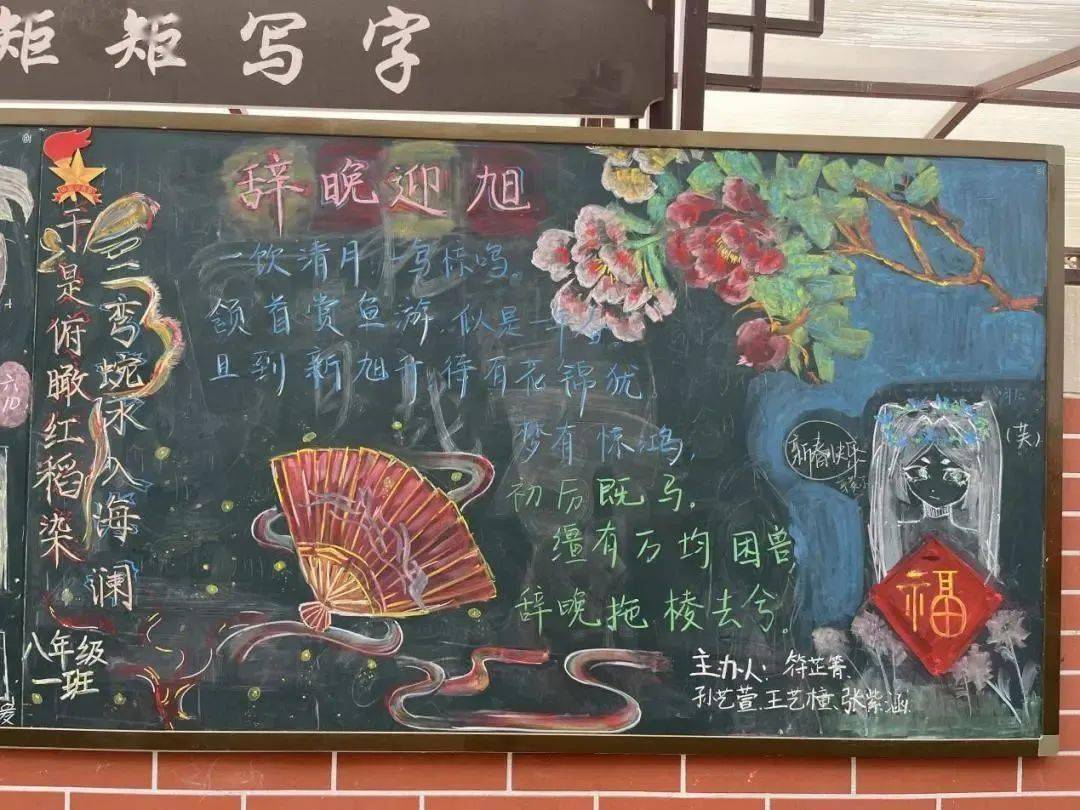 矩矩写字
辞晚迎旭
一饮清月一鸟惊鸣。
领首赏鱼游.似是一年
且到新旭升待有花锦犹
梦有惊鸿,
初历既马.
缰有万均困兽,
辞晚拖棱去兮。
于是俯瞰红稻染
弯蜿冰入海澜
八年级
一班
新春快乐
(芙)
福
主办人:符芷菁
孙艺萱.王艺橦.张紫涵